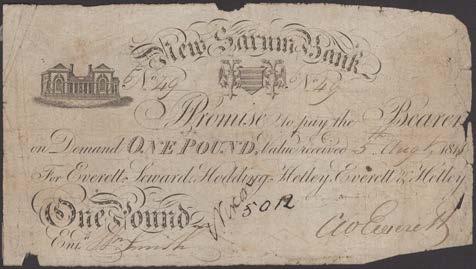 New Sarum Bank
No. 49 No. 49
I Promise to pay the Bearer
on Demand ONE POUND, Value received 5th Augt.
For Everett, Seward, Hodding, Hetley, Everett & Hetley
One Pound
5012
Ent.